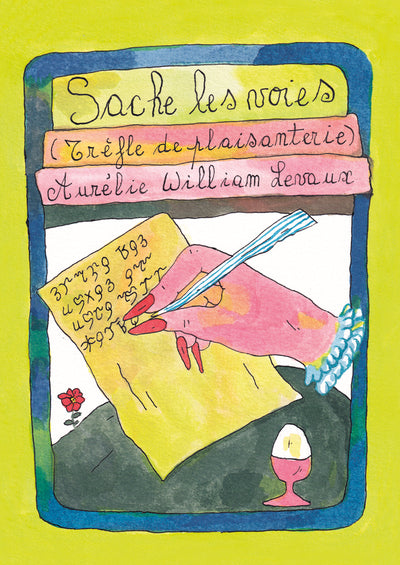 Sache les voies
(Trèfle de plaisanterie)
Aurélie William Levaux